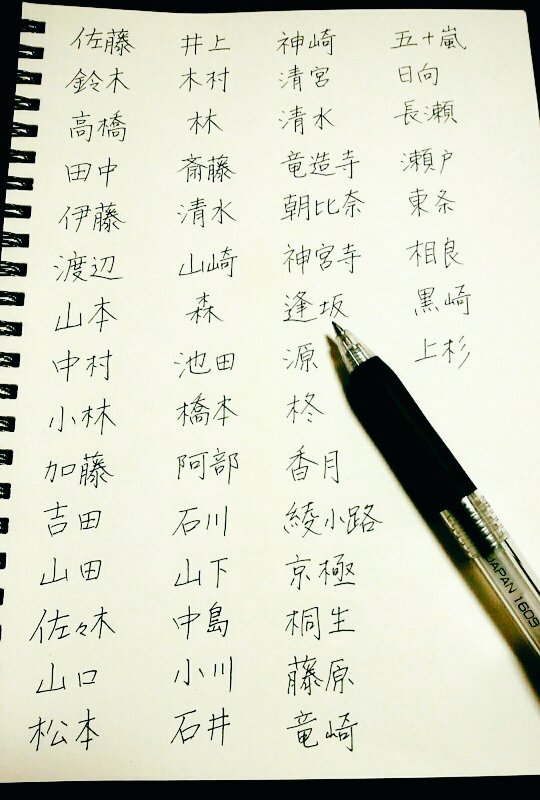 佐藤
鈴木
高橋
田中
伊藤
渡辺
山本
中村
小林
加藤
吉田
山田
佐々木
山口
松本
井上
木村
林
斎藤
清水
山崎
森
池田
橋本
阿部
石川
山下
中島
小川
石井
神崎
清宮
清水
竜造寺
朝比奈
神宮寺
逢坂
源
柊
香月
綾小路
京極
桐生
藤原
竜崎
五十嵐
日向
長瀬
瀬戸
東条
相良
黒崎
上杉
JAPAN 1609